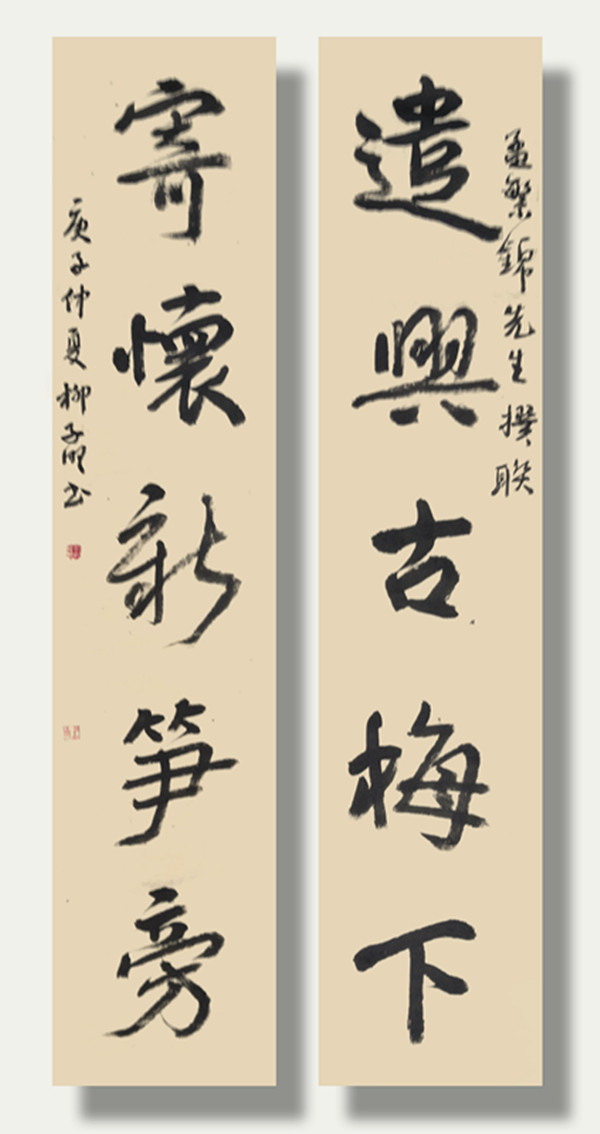 孟繁錦先生撰联
遣興古梅下
寄懷新笋旁
庚子仲夏柳子
书